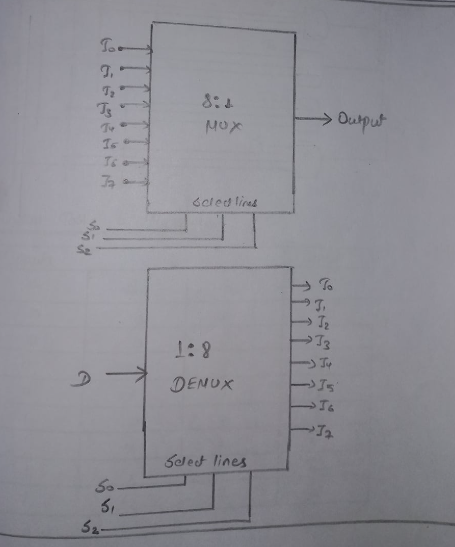 I₀
I₁
I₂
I₃
I₄
I₅
I₆
I₇
8:1
MUX
Output
Select lines
S₀
S₁
S₂
D
1:8
DEMUX
I₀
I₁
I₂
I₃
I₄
I₅
I₆
I₇
Select lines
S₀
S₁
S₂